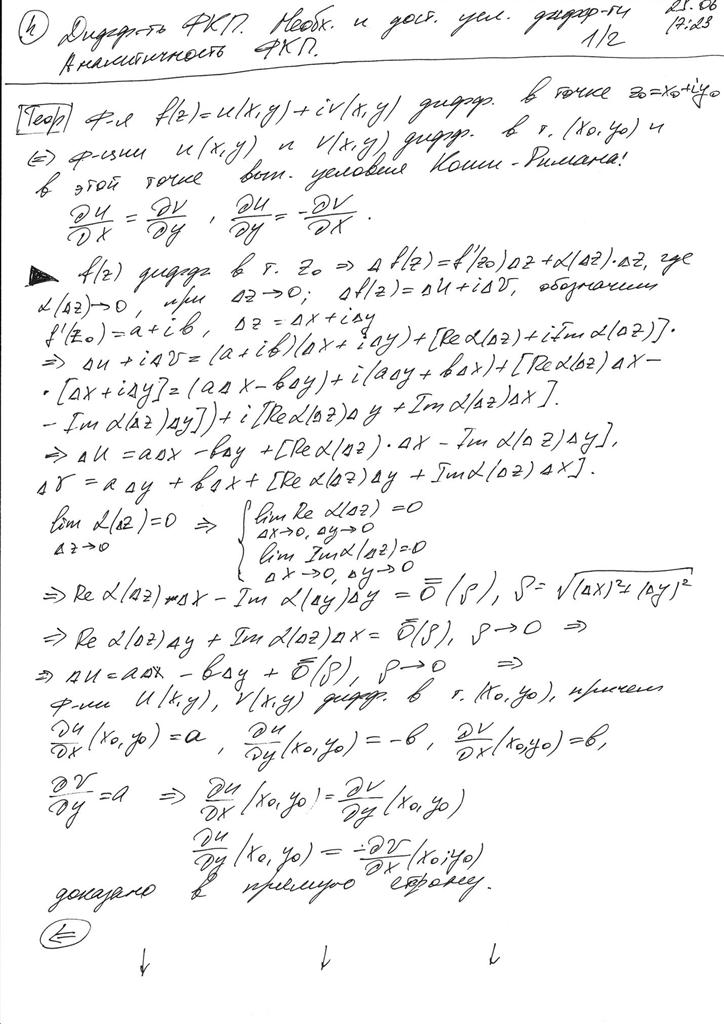 (h) Дифф-ть ФКП. Необх. и дост. усл. дифф-ти 23.06
Аналитичность ФКП. 1/2 17:23
[Теор] Ф-я f(z)=u(x,y)+iv(x,y) дифф. в точке z₀=x₀+iy₀
(⇔) ф-ции u(x,y) и v(x,y) дифф. в т. (x₀,y₀) и
в этой точке вып. условия Коши-Римана!
∂u/∂x = ∂v/∂y , ∂u/∂y = -∂v/∂x .
▶ f(z) дифф в т. z₀ ⇒ Δf(z)=f'(z₀)Δz+α(Δz)·Δz, где
α(Δz)→0, при Δz→0; Δf(z)=Δu+iΔv, обозначим
f'(z₀)=a+ib, Δz=Δx+iΔy
⇒ Δu+iΔv=(a+ib)(Δx+iΔy)+[Re α(Δz)+i Im α(Δz)]·
·[Δx+iΔy]=(aΔx-bΔy)+i(aΔy+bΔx)+[Re α(Δz)Δx-
-Im α(Δz)Δy])+i[Re α(Δz)Δy+Im α(Δz)Δx].
⇒ Δu=aΔx-bΔy+[Re α(Δz)·Δx-Im α(Δz)Δy],
Δv=aΔy+bΔx+[Re α(Δz)Δy+Im α(Δz)Δx].
lim α(Δz)=0 ⇒ { lim Re α(Δz)=0
Δz→0 Δx→0, Δy→0
lim Im α(Δz)=0
Δx→0, Δy→0
⇒ Re α(Δz)·Δx - Im α(Δy)Δy = ō(ρ), ρ=√((Δx)²+(Δy)²
⇒ Re α(Δz)Δy + Im α(Δz)Δx = ō(ρ), ρ→0 ⇒
⇒ Δu=aΔx-bΔy+ō(ρ), ρ→0 ⇒
ф-ии u(x,y), v(x,y) дифф. в т. (x₀,y₀), причем
∂u/∂x (x₀,y₀)=a , ∂u/∂y (x₀,y₀)=-b, ∂v/∂x (x₀,y₀)=b,
∂v/∂y=a ⇒ ∂u/∂x (x₀,y₀)=∂v/∂y (x₀,y₀)
∂u/∂y (x₀,y₀) = -∂v/∂x (x₀,y₀)
доказано в прямую сторону.
(⇐)
↓ ↓ ↓